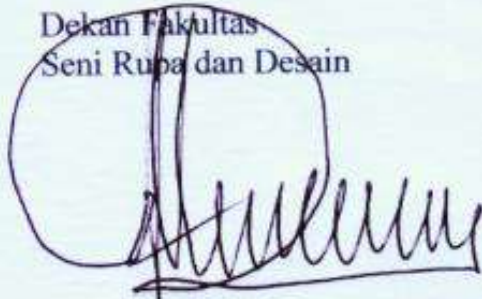 Dekan Fakultas
Seni Rupa dan Desain